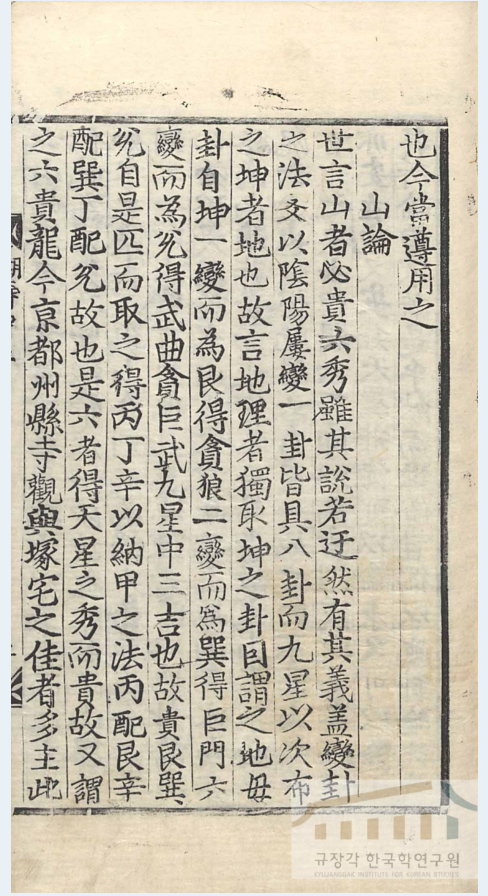 也今當遵用之
山論
世言山者必貴六秀雖其說若迂然有其義盖變卦
之法爻以陰陽屢變一卦皆具八卦而九星以次布
之坤者地也故言地理者獨取坤之卦曰謂之地毋
卦自坤一變而為艮得貪狼二變而爲巽得巨門六
變而為兊得武曲貪巨武九星中三吉也故貴艮巽
兊自是匹而取之得丙丁辛以納甲之法丙配艮辛
配巽丁配兊故也是六者得天星之秀而貴故又謂
之六貴龍今亰都州縣寺觀與塚宅之佳者多主此
규장각 한국학연구원
KYUJANGGAK INSTITUTE FOR KOREAN STUDIES